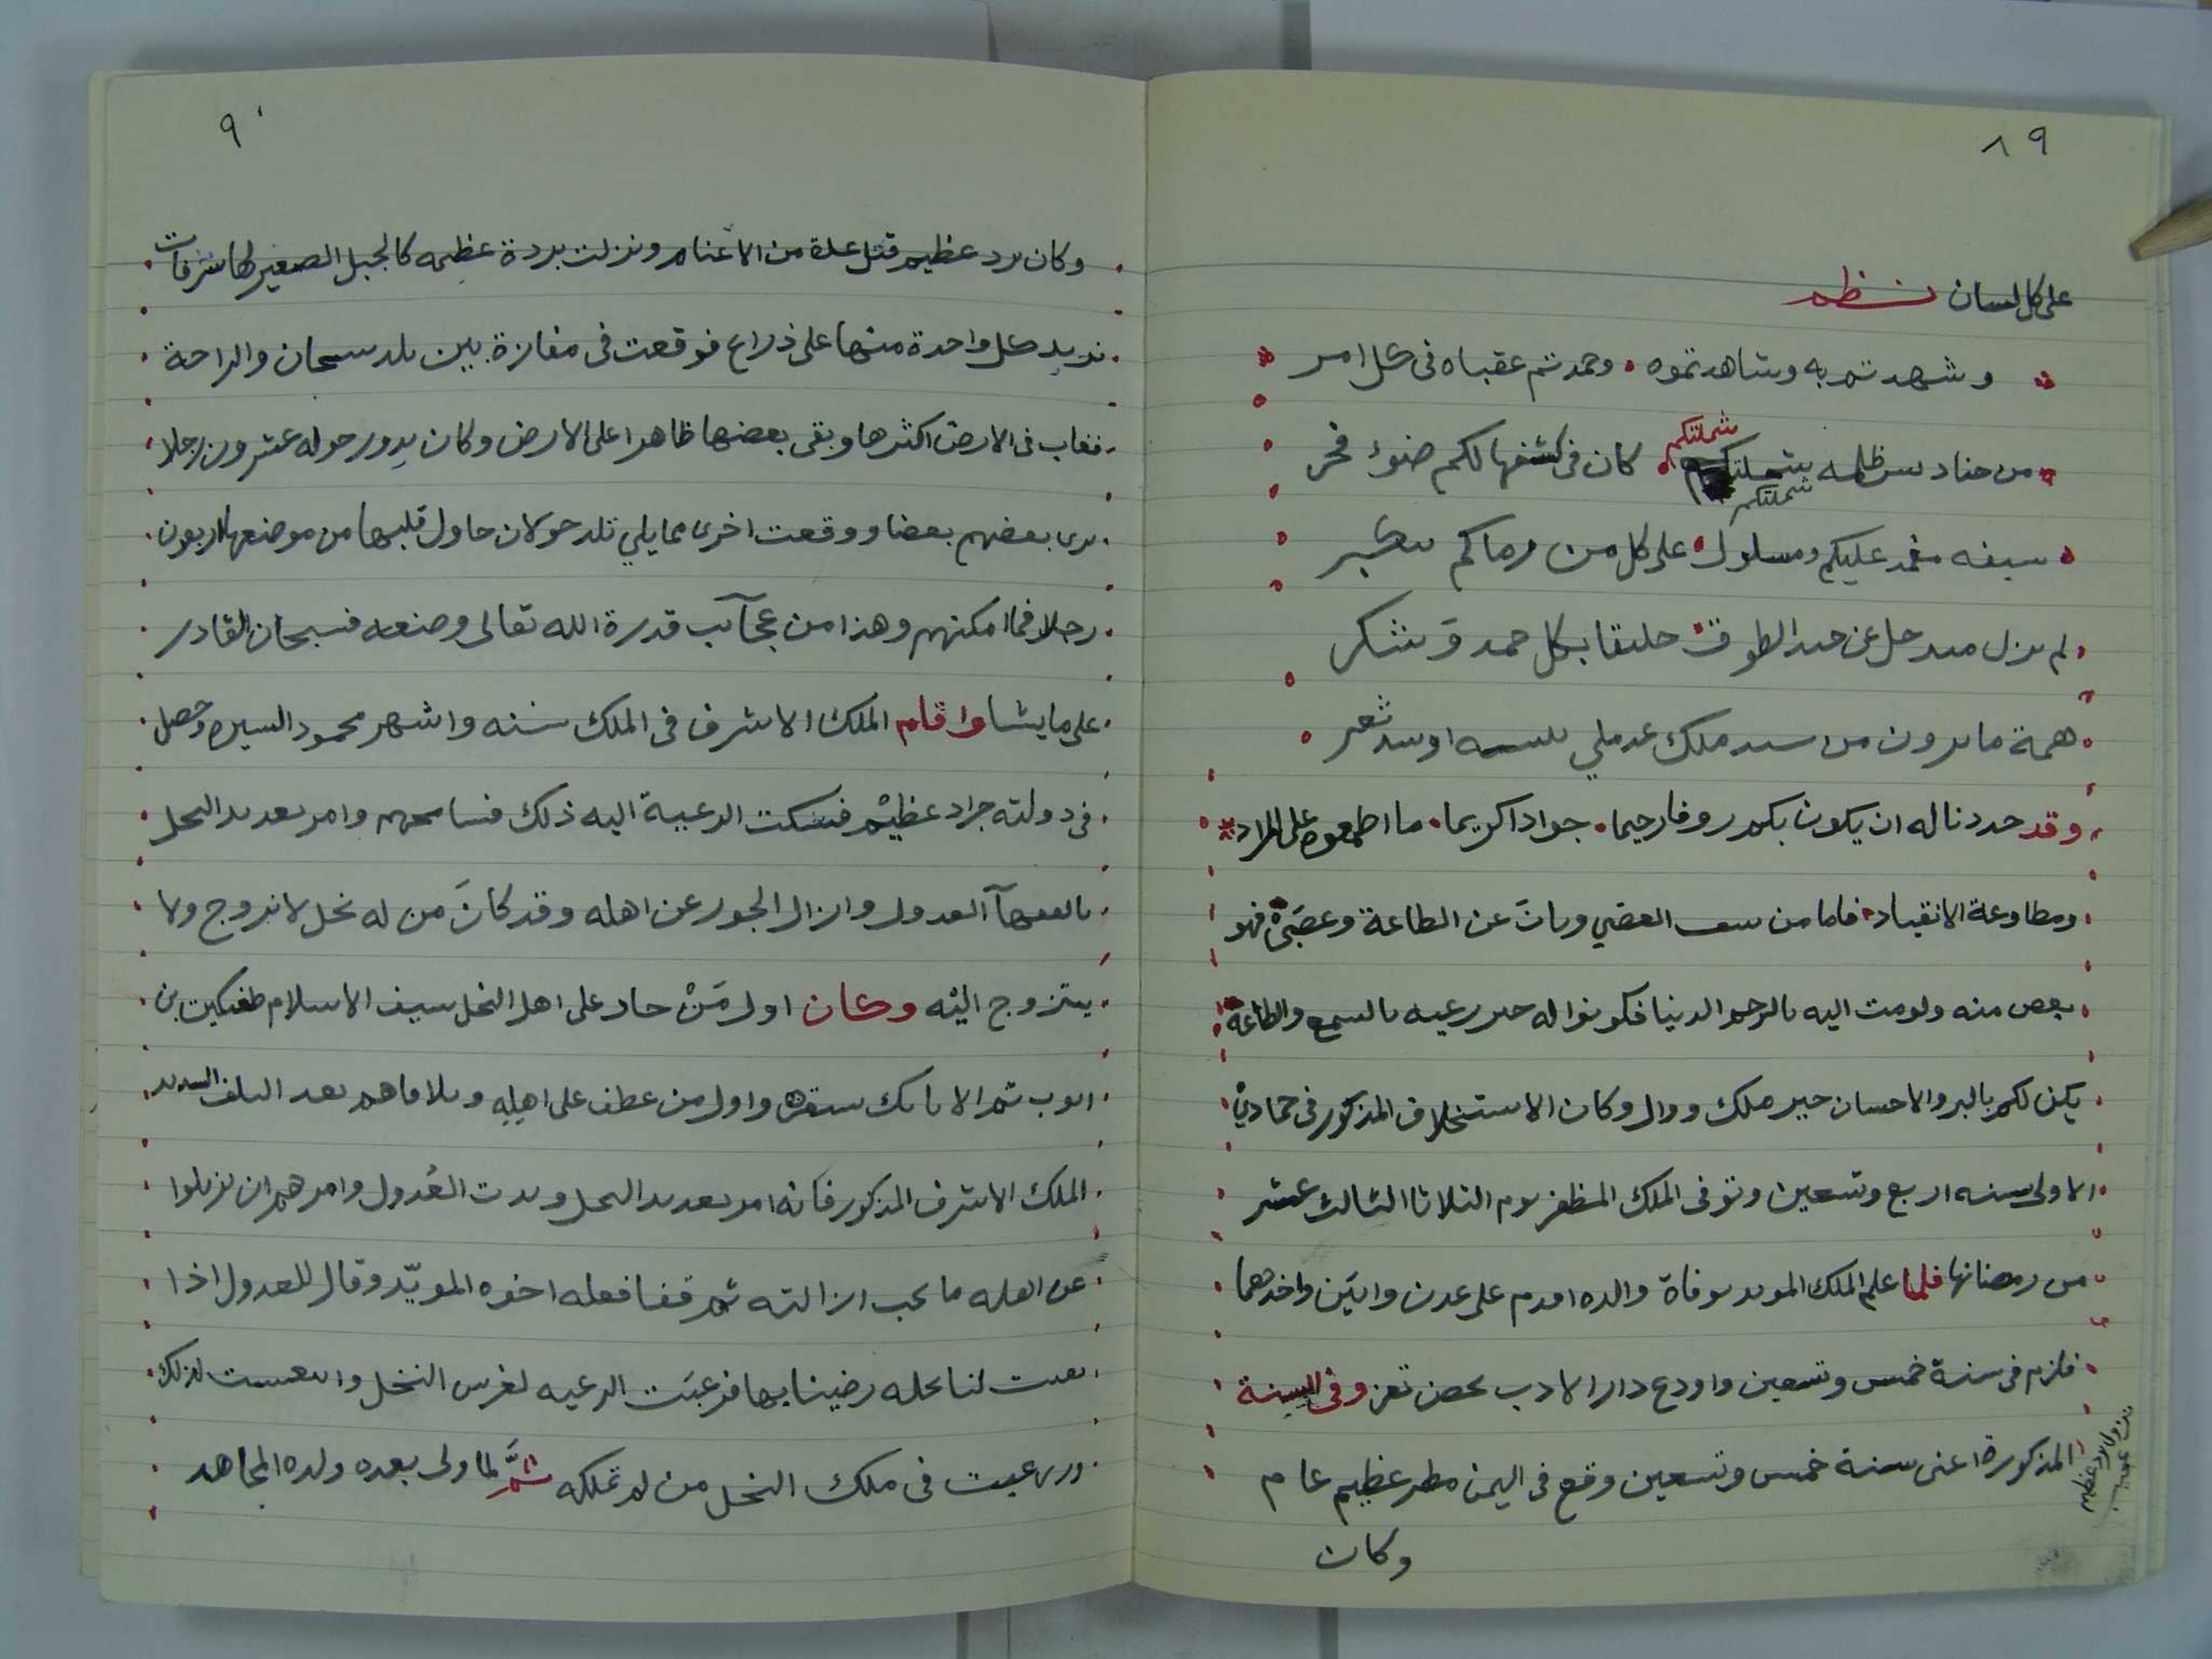 ٨٩
على كل لسان نظم
وشهدتم به وشاهدتموه . وحمدتم عقباه فى كل امر
من حنادس ظلمه شملتكم . كان فى كشفها لكم ضوء فجر
شملتكم
سيفه مغمد عليكم ومسلول . على كل من رماكم
لم يزل حل عن الطوق خليقا بكل حمد وشكر
همة ما يرون من ملك او سد ثغر
وقد حددنا له ان يكون بكم روفا رحيما . جوادا كريما . ما اطعموه على المراد
ومطاوعة الانقياد . فاما من العصي وبات عن الطاعة وعصى فهو
منه ولو مت اليه بالرحم الدنيا فكونوا له خير رعيه بالسمع والطاعه
يكن لكم بالبر والاحسان خير ملك ووال وكان الاستخلاف المذكور فى جمادي
الاولى سنه اربع وتسعين وتوفى الملك المظفر يوم الثلاثا الثالث عشر
من رمضانها فلما علم الملك المويد بوفاة والده اقدم على عدن وابين واخدهما
فلزم فى سنة خمس وتسعين واودع دار الادب بحصن تعز وفى السنة
المذكورة اعنى سنة خمس وتسعين وقع فى اليمن مطر عظيم عام
وكان
نزول برد عظيم عجيب
٩٠
وكان برد عظيم قتل عدة من الاغنام ونزلت بردة عظيمه كالجبل الصغير لها شرفات
تزيد كل واحدة منها على ذراع فوقعت فى مفازة بين بلد سنحان والراحة
فغاب فى الارض اكثرها وبقى بعضها ظاهرا على الارض وكان يدور حوله عشرون رجلا
يرى بعضهم بعضا ووقعت اخرى مما يلي بلد خولان حاول قلبها من موضعها اربعون
رجلا فما امكنهم وهذا من عجآيب قدرة الله تعالى وصنعه فسبحان القادر
على ما يشا واقام الملك الاشرف فى الملك سنه واشهر محمود السيره وحصل
فى دولته جراد عظيم فشكت الرعية اليه ذلك فسامحهم وامر بعديد النخل
بالفقهآ العدول وازال الجور عن اهله وقد كان من له نخل لا يزوج ولا
يتزوج اليه وكان اول من حاد على اهل النخل سيف الاسلام طغتكين بن
ايوب ثم الاتابك سنقر واول من عطف على اهله وتلافاهم بعد التلف الشديد
الملك الاشرف المذكور فانه امر بعديد النخل وبدت العدول وامرهم ان يزيلوا
عن اهله ما يجب ازالته ثم قفا فعله اخوه المويد وقال للعدول اذا
بقيت لنا نخله رضينا بها فرغبت الرعيه لغرس النخل وانتعشت لذلك
ورغبت فى ملك النخل من لم تملكه ثم لما ولى بعده ولده المجاهد